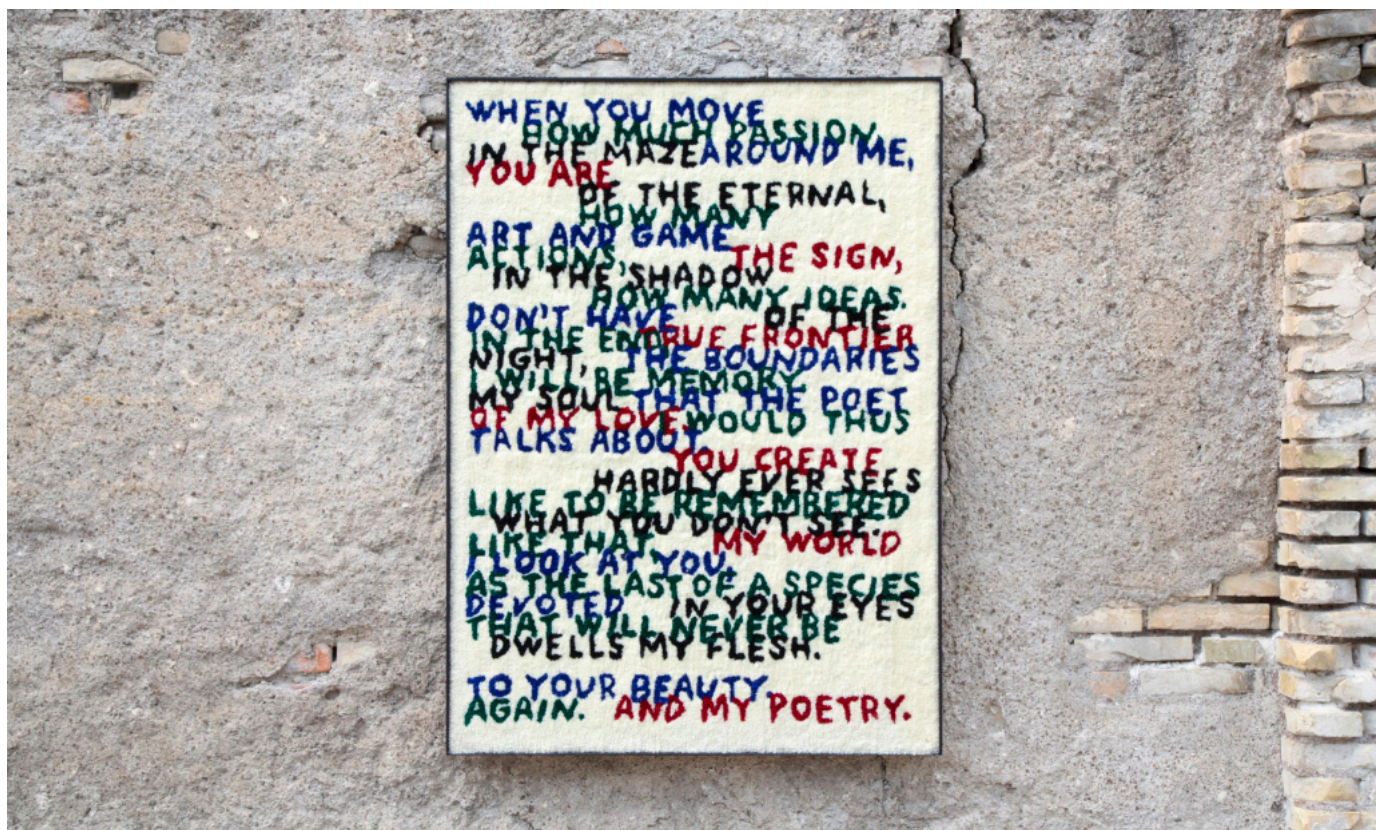 WHEN YOU MOVE
HOW MUCH PASSION,
IN THE MAZE AROUND ME,
YOU ARE
OF THE ETERNAL,
HOW MANY
ART AND GAME
ACTIONS, THE SIGN,
IN THE SHADOW
HOW MANY IDEAS.
DON'T HAVE OF THE
IN THE END TRUE FRONTIER
NIGHT, THE BOUNDARIES
I WILL BE MEMORY
MY SOUL THAT THE POET
OF MY LOVE. WOULD THUS
TALKS ABOUT.
YOU CREATE
HARDLY EVER SEES
LIKE TO BE REMEMBERED
WHAT YOU DON'T SEE.
LIKE THAT, MY WORLD
I LOOK AT YOU,
AS THE LAST OF A SPECIES
DEVOTED IN YOUR EYES
THAT WILL NEVER BE
DWELLS MY FLESH.
TO YOUR BEAUTY.
AGAIN. AND MY POETRY.